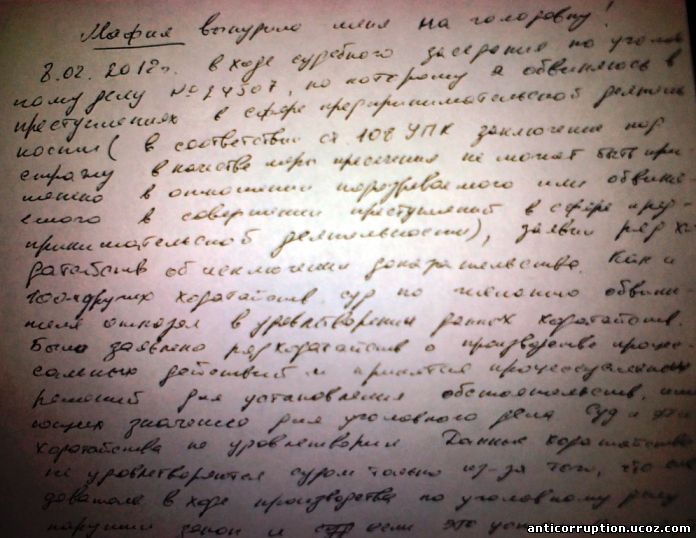 Мафия вынудила меня на голодовку!
8.02.2012г. в ходе судебного заседания по уголов
ному делу № 24507, по которому я обвиняюсь в
преступлениях в сфере предпринимательской деятель
ности (в соответствии ст 108 УПК заключение под
стражу в качестве меры пресечения не может быть при
менено в отношении подозреваемого или обвиня-
емого в совершении преступлений в сфере пред
принимательской деятельности), заявил ряд хо
датайств об исключении доказательства. Как и
других ходатайств суд по желанию обвини-
теля отказал в удовлетворении данных ходатайств.
Было заявлено ряд ходатайств о производстве процес
суальных действий и принятия процессуальных
решений для установления обстоятельств, име
ющих значение для уголовного дела Суд и эти
ходатайства не удовлетворил Данные ходатайства
не удовлетворяются судом только из-за того, что сле
дователь в ходе производства по уголовному делу
нарушил закон и если это
anticorruption.ucoz.com